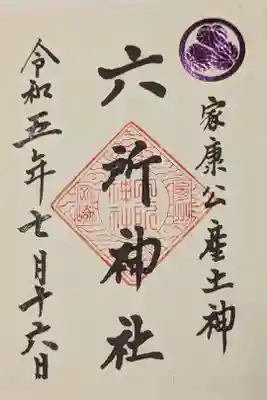 家康公産土神
六所神社
令和五年七月十六日